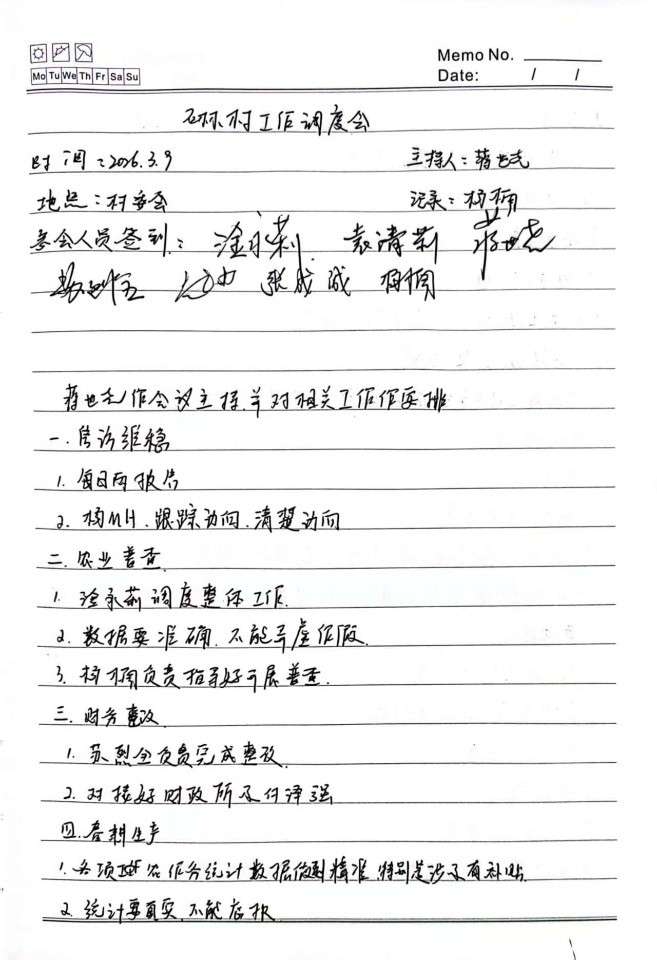 Mo Tu We Th Fr Sa Su
Memo No.
Date: / /
村工作调度会
时间:2026.3.9 主持人:蒋世志
地点:村委会 记录:杨桐
参会人员签到: 袁清莉
张成诚 杨桐
作会议主持并对相关工作作安排
一.信访维稳
1. 每日两报告
2. 杨MH.跟踪动向.清楚动向
二.农业普查
1. 调度整体工作.
2. 数据要准确.不能弄虚作假.
3. 杨桐负责指导好开展普查.
三.财务整改
1. 负责完成整改
2. 对接好财政所及付泽强
四.春耕生产
1.各项 农作务统计数据做到精准.特别是涉及有补贴.
2.统计要真实.不能